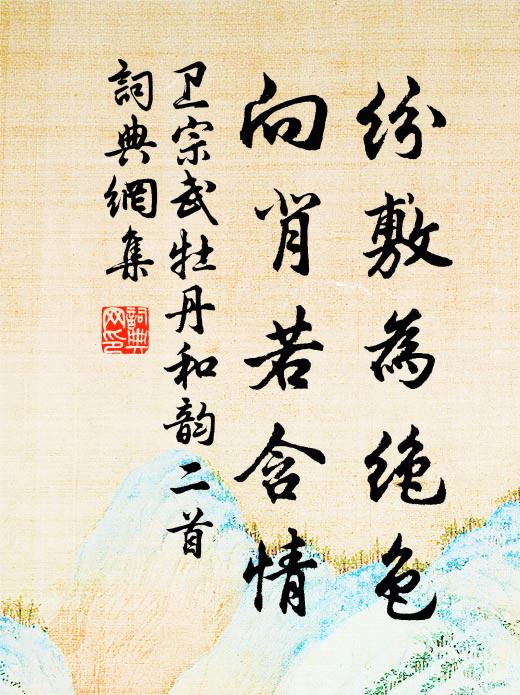 纷敷為绝色
向背若含情
卫宗武牡丹和韵二首
詞典網集
詞典网印